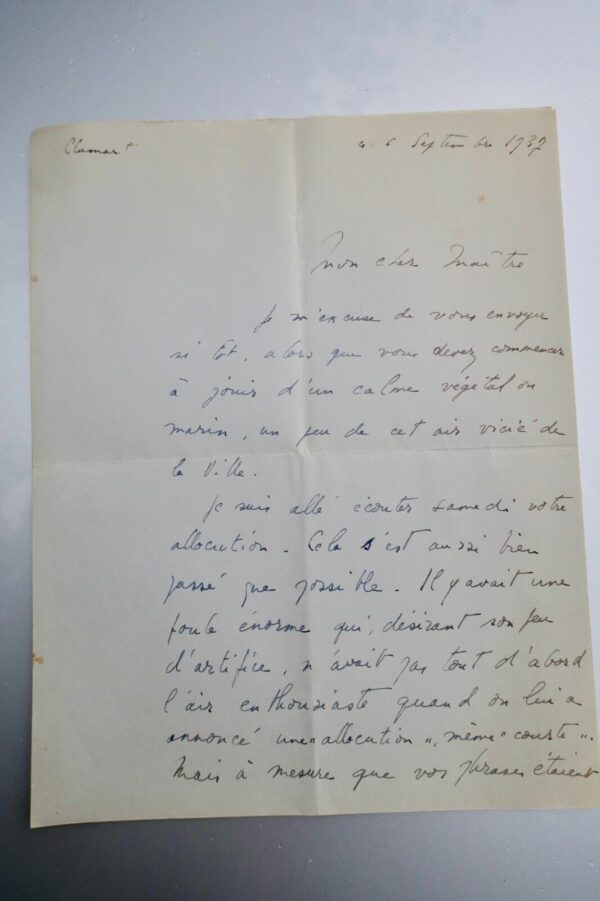 Clamart
6 Septembre 1937
Mon cher Maître
Je m'excuse de vous envoyer
si tôt, alors que vous devez commencer
à jouir d'un calme végétal ou
marin, un peu de cet air vicié de
la Ville.
Je suis allé écouter samedi votre
allocution. Cela s'est aussi bien
passé que possible. Il y avait une
foule énorme qui, désirant son feu
d'artifice, n'avait pas tout d'abord
l'air enthousiaste quand on lui a
annoncé une "allocution", même "courte".
Mais à mesure que vos phrases étaient